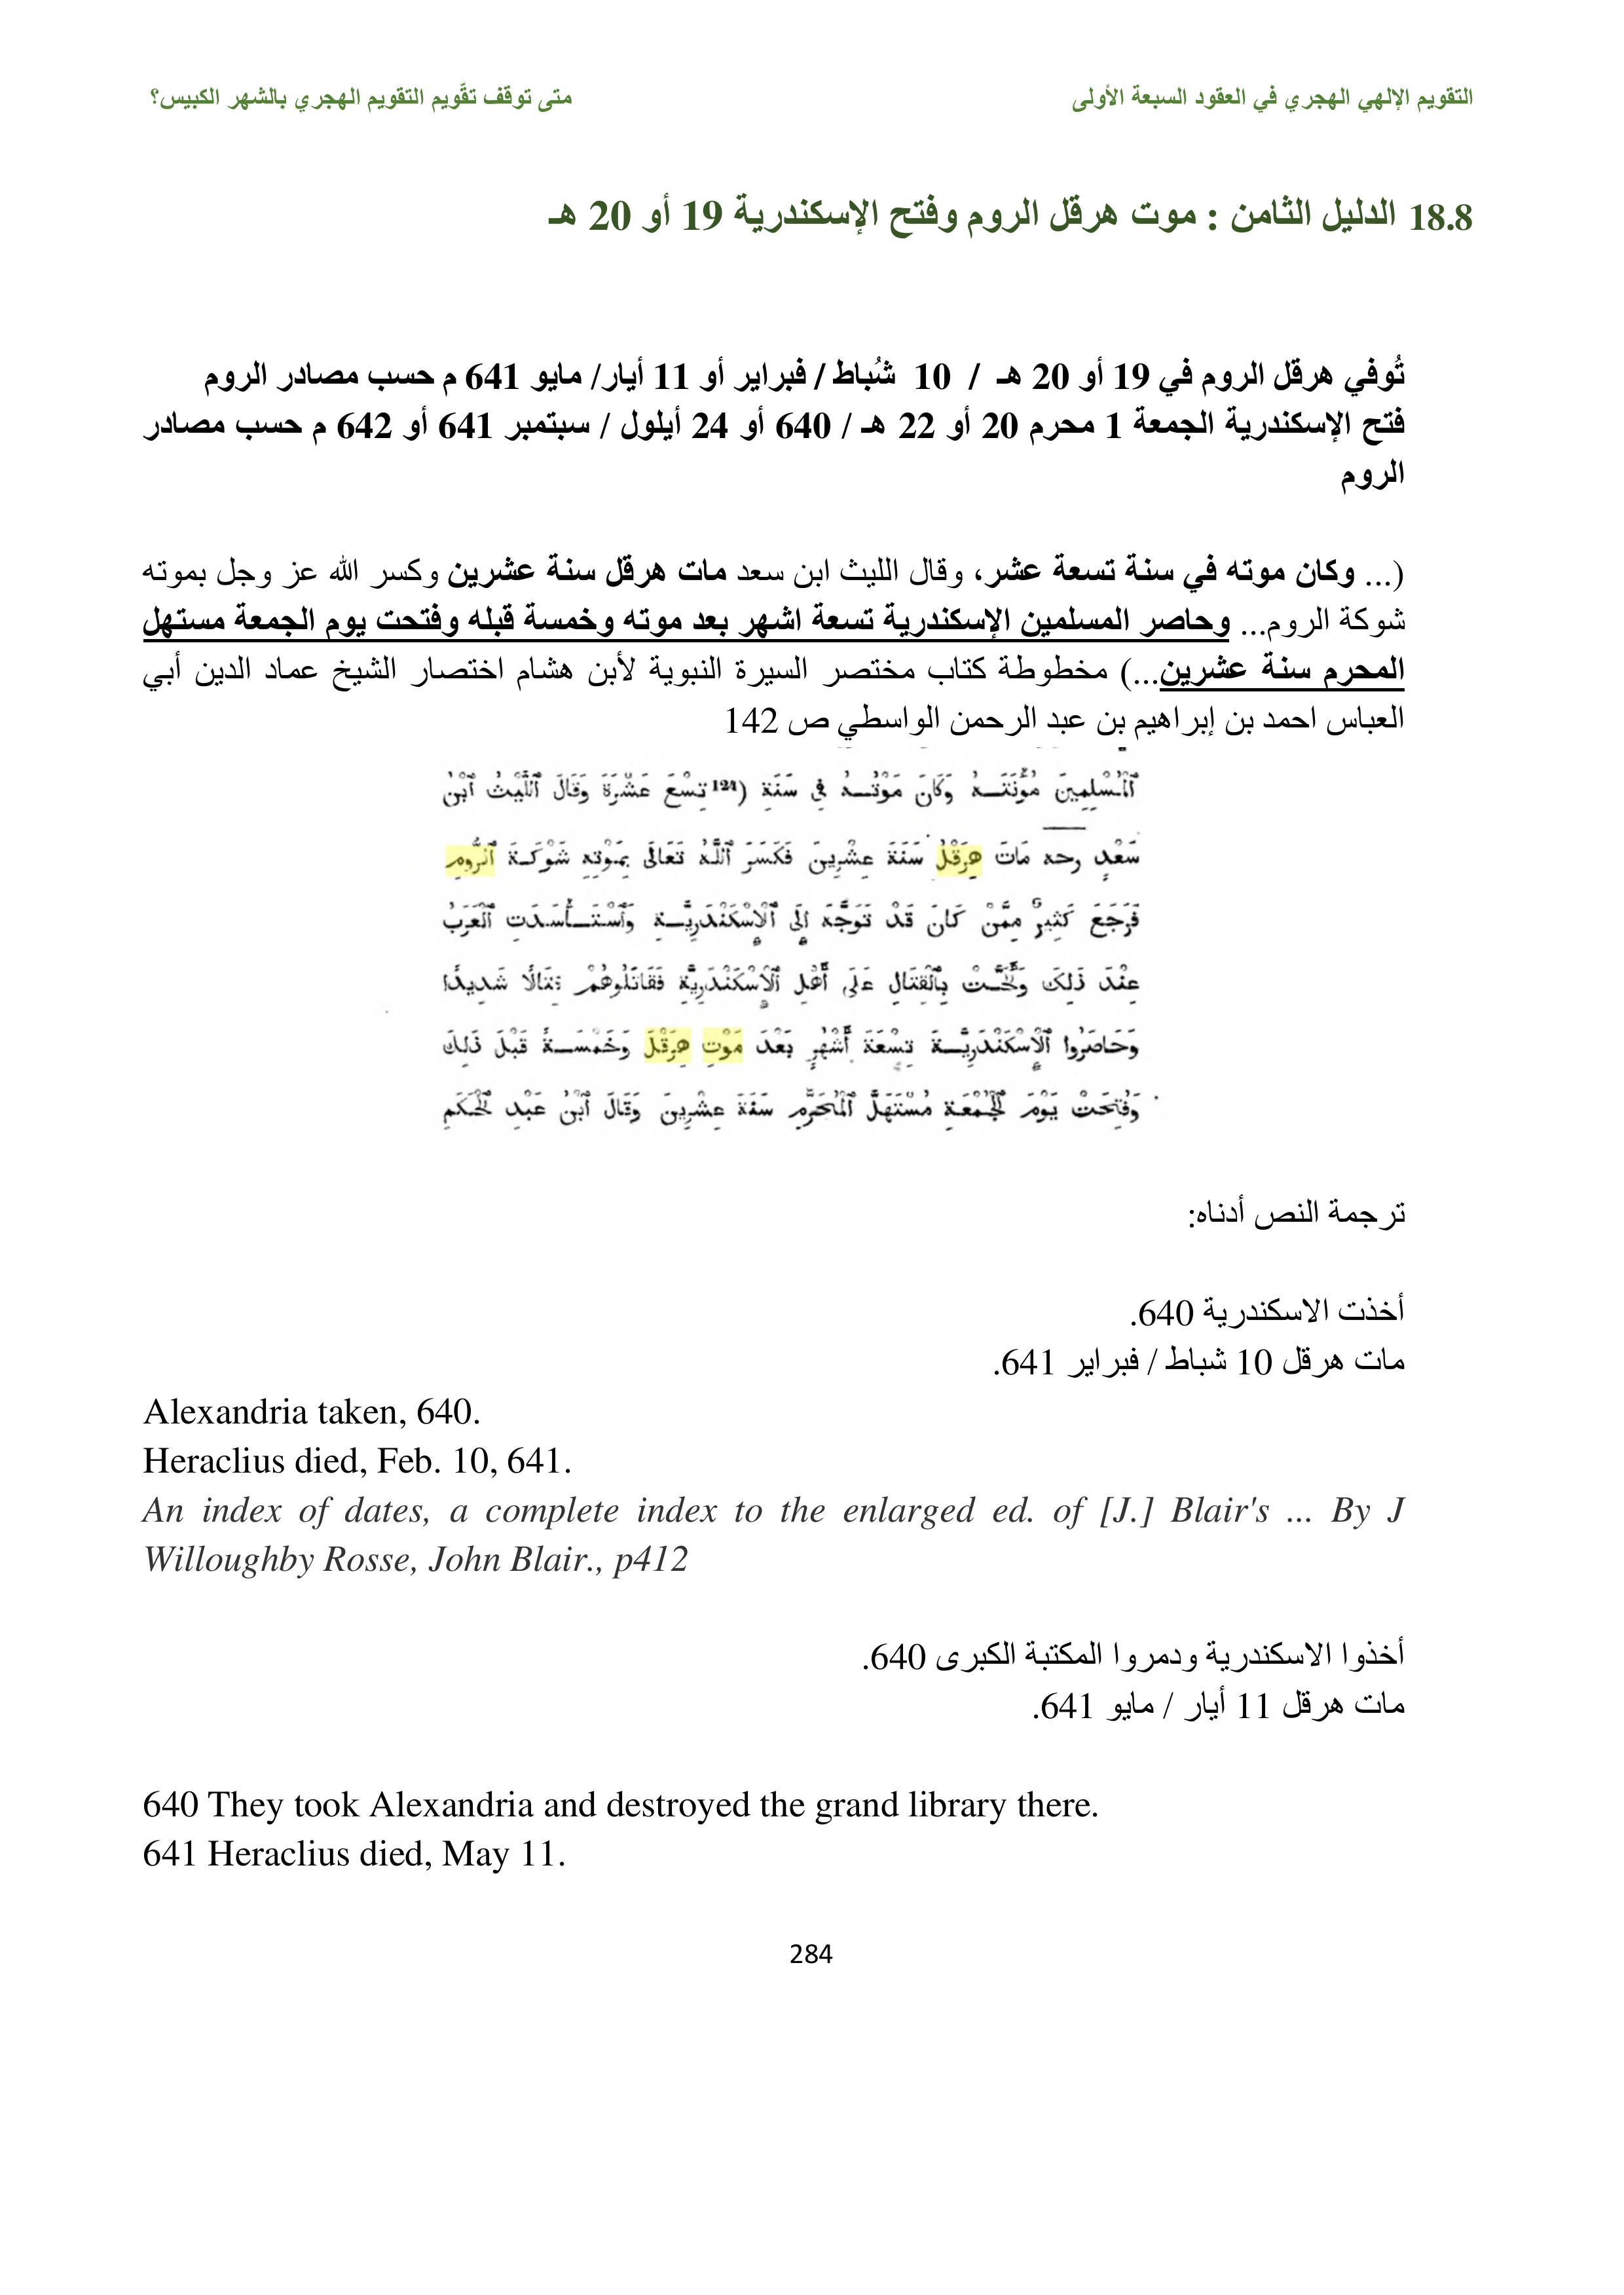 التقويم الإلهي الهجري في العقود السبعة الأولى
متى توقف تقّويم التقويم الهجري بالشهر الكبيس؟
18.8 الدليل الثامن : موت هرقل الروم وفتح الإسكندرية 19 أو 20 هـ
تُوفي هرقل الروم في 19 أو 20 هـ / 10 شُباط / فبراير أو 11 أيار/ مايو 641 م حسب مصادر الروم
فتح الإسكندرية الجمعة 1 محرم 20 أو 22 هـ / 640 أو 24 أيلول / سبتمبر 641 أو 642 م حسب مصادر
الروم
(... وكان موته في سنة تسعة عشر، وقال الليث ابن سعد مات هرقل سنة عشرين وكسر الله عز وجل بموته
شوكة الروم... وحاصر المسلمين الإسكندرية تسعة اشهر بعد موته وخمسة قبله وفتحت يوم الجمعة مستهل
المحرم سنة عشرين...) مخطوطة كتاب مختصر السيرة النبوية لأبن هشام اختصار الشيخ عماد الدين أبي
العباس احمد بن إبراهيم بن عبد الرحمن الواسطي ص 142
ٱلْمُسْلِمِينَ مُؤْنَتَهُ وَكَانَ مَوْتُهُ فِى سَنَةِ (124 تِسْعَ عَشْرَةَ وَقَالَ ٱللَّيْثُ ٱبْنُ
سَعْدٍ رحه مَاتَ هِرَقْلُ سَنَةَ عِشْرِينَ فَكَسَرَ ٱللَّهُ تَعَالَى بِمَوْتِهِ شَوْكَةَ ٱلرُّومِ
فَرَجَعَ كَثِيرٌ مِمَّنْ كَانَ قَدْ تَوَجَّهَ إِلَى ٱلْإِسْكَنْدَرِيَّةِ وَٱسْتَأْسَدَتِ ٱلْعَرَبُ
عِنْدَ ذَلِكَ وَأَلَحَّتْ بِٱلْقِتَالِ عَلَى أَهْلِ ٱلْإِسْكَنْدَرِيَّةِ فَقَاتَلُوهُمْ قِتَالًا شَدِيدًا
وَحَاصَرُوا ٱلْإِسْكَنْدَرِيَّةَ تِسْعَةَ أَشْهُرٍ بَعْدَ مَوْتِ هِرَقْلَ وَخَمْسَةً قَبْلَ ذَلِكَ
وَفُتِحَتْ يَوْمَ ٱلْجُمْعَةِ مُسْتَهَلَّ ٱلْمُحَرَّمِ سَنَةَ عِشْرِينَ وَقَالَ ٱبْنُ عَبْدِ ٱلْحَكَمِ
ترجمة النص أدناه:
أخذت الاسكندرية 640.
مات هرقل 10 شباط / فبراير 641.
Alexandria taken, 640.
Heraclius died, Feb. 10, 641.
An index of dates, a complete index to the enlarged ed. of [J.] Blair's ... By J
Willoughby Rosse, John Blair., p412
أخذوا الاسكندرية ودمروا المكتبة الكبرى 640.
مات هرقل 11 أيار / مايو 641.
640 They took Alexandria and destroyed the grand library there.
641 Heraclius died, May 11.
284